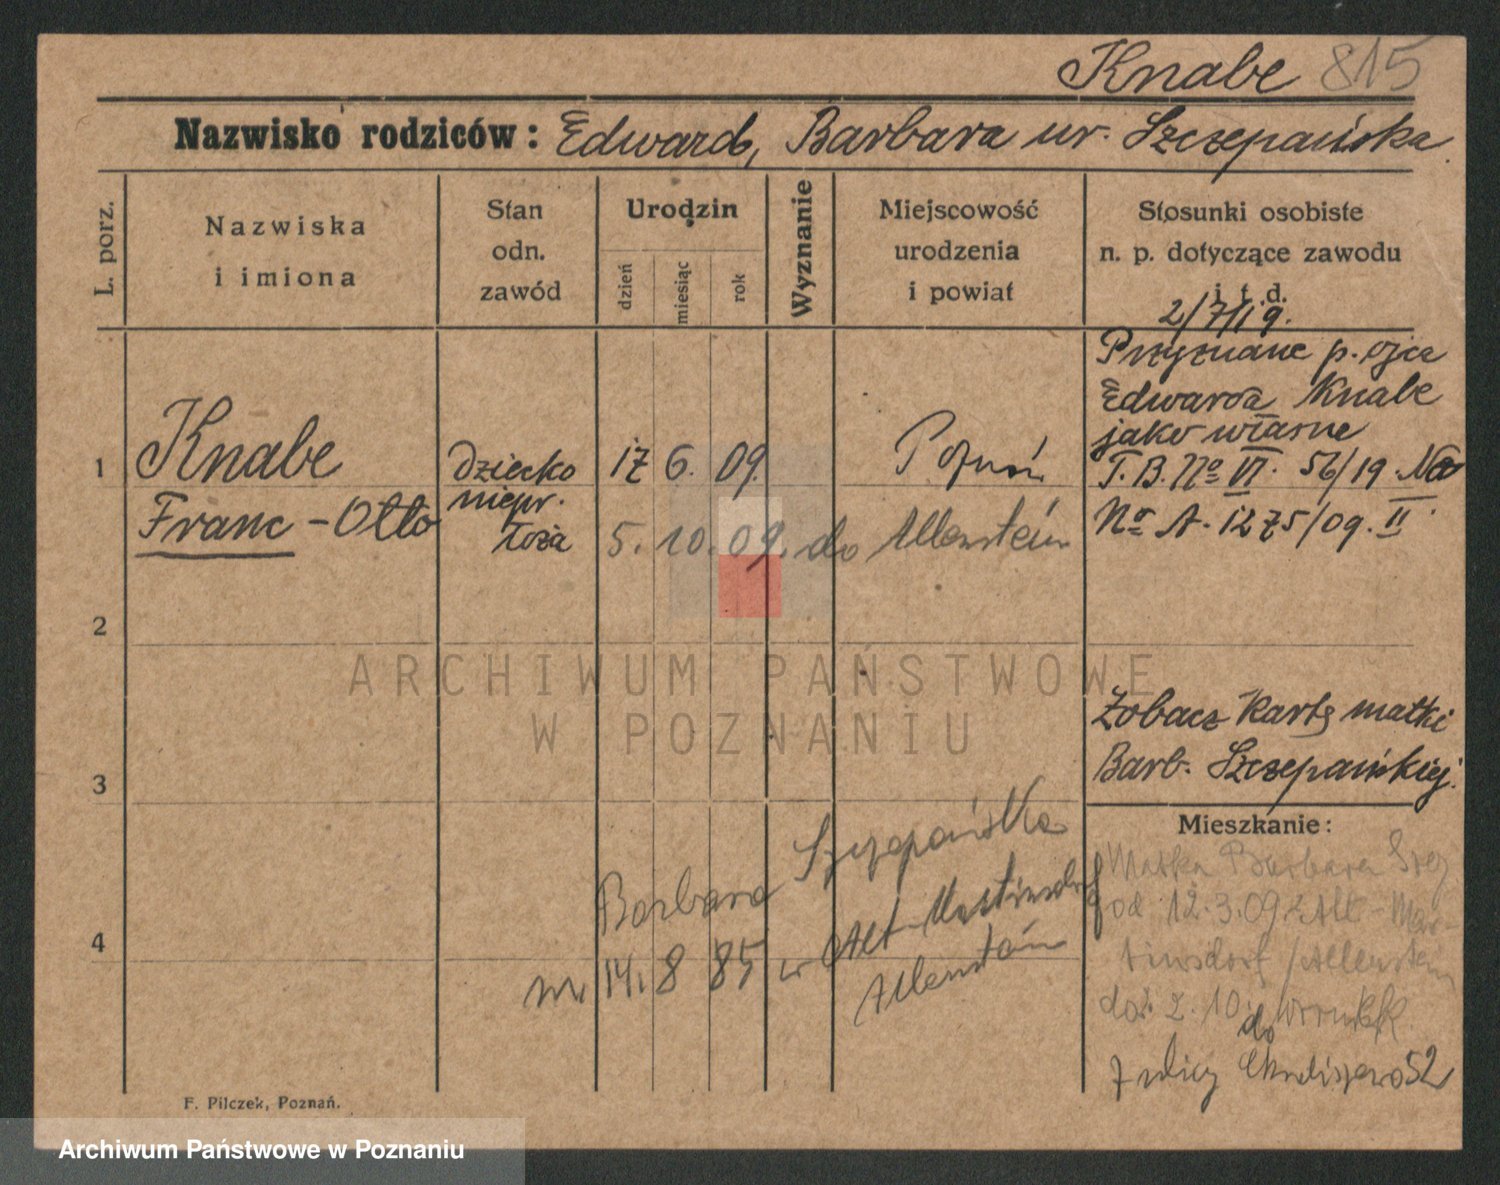 Knabe 815
Nazwisko rodziców: Edward, Barbara ur. Szczepańska.
L. porz.
Nazwiska
i imiona
Stan
odn.
zawód
Urodzin
dzień
miesiąc
rok
Wyznanie
Miejscowość
urodzenia
i powiat
Stosunki osobiste
n. p. dotyczące zawodu
i t. d.
2/7/19.
Przyznane p. ojca
Edwarda Knabe
jako własne
T.B. No VI. 56/19
No A. 1275/09. II.
1
Knabe
Franc - Otto
dziecko
niepr.
łoża
17 6. 09.
Poznań
5. 10. 09. do Allenstein
2
Zobacz kartę matki
Barb. Szczepańskiej.
3
Mieszkanie:
Matka Barbara Szcz
od 12.3.09 z Alt-Mar-
tinsdorf /Allenstein
do
52
4
Barbara Szczepańska
ur. 14. 8 85 w Alt-Martinsdorf
Allenstein
F. Pilczek, Poznań.
ARCHIWUM PAŃSTWOWE
W POZNANIU
Archiwum Państwowe w Poznaniu